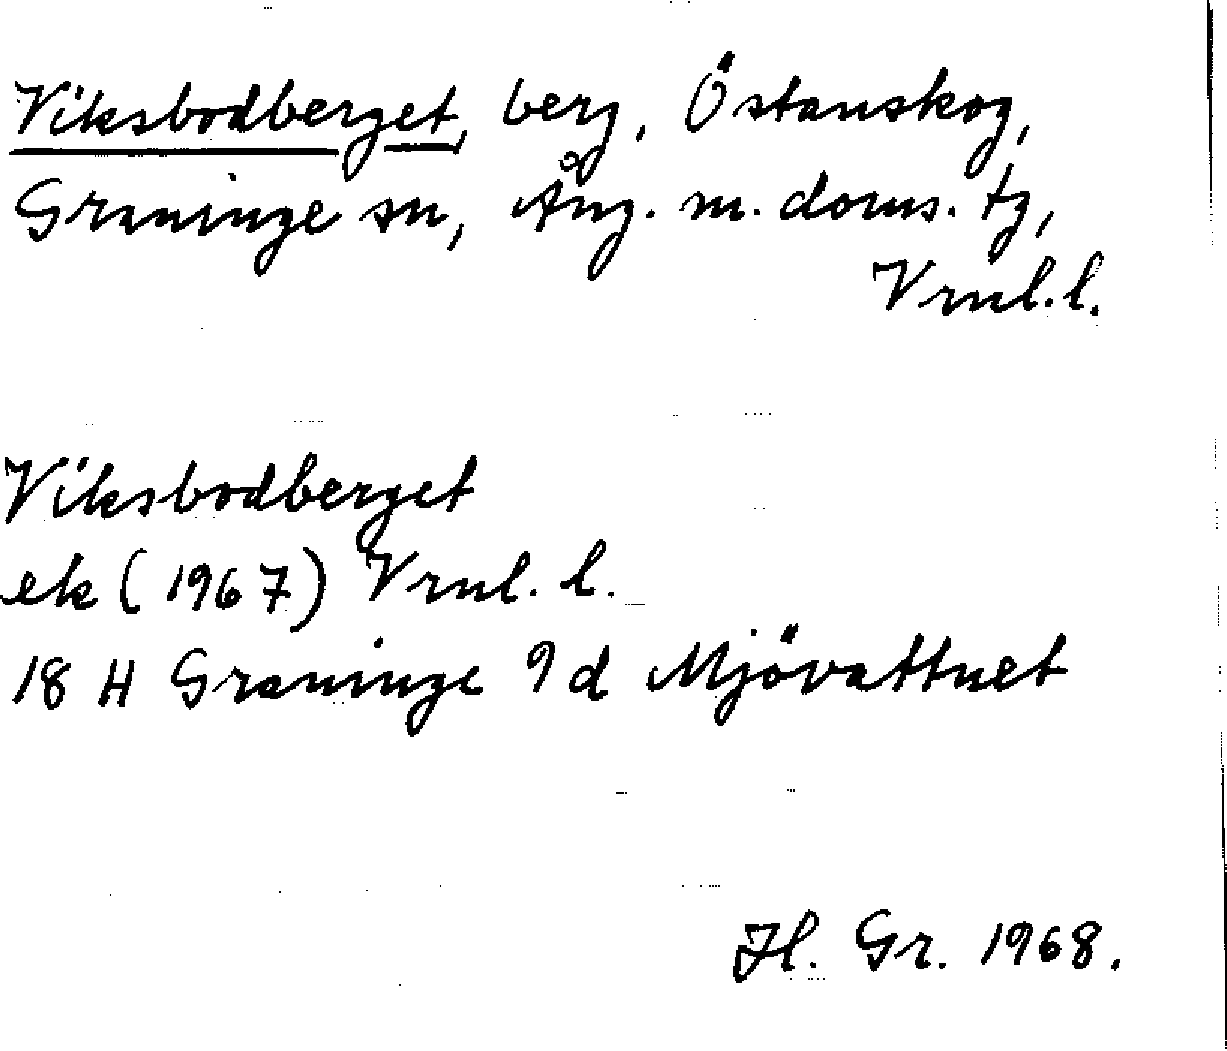 Viksbodberget, berg, Östanskog,
Graninge sn, Ång. m. doms. tg,
Vrnl. l.
Viksbodberget
ek (1967) Vrnl. l.
18 H Graninge 9 d Mjövattnet
Hl. Gr. 1968.